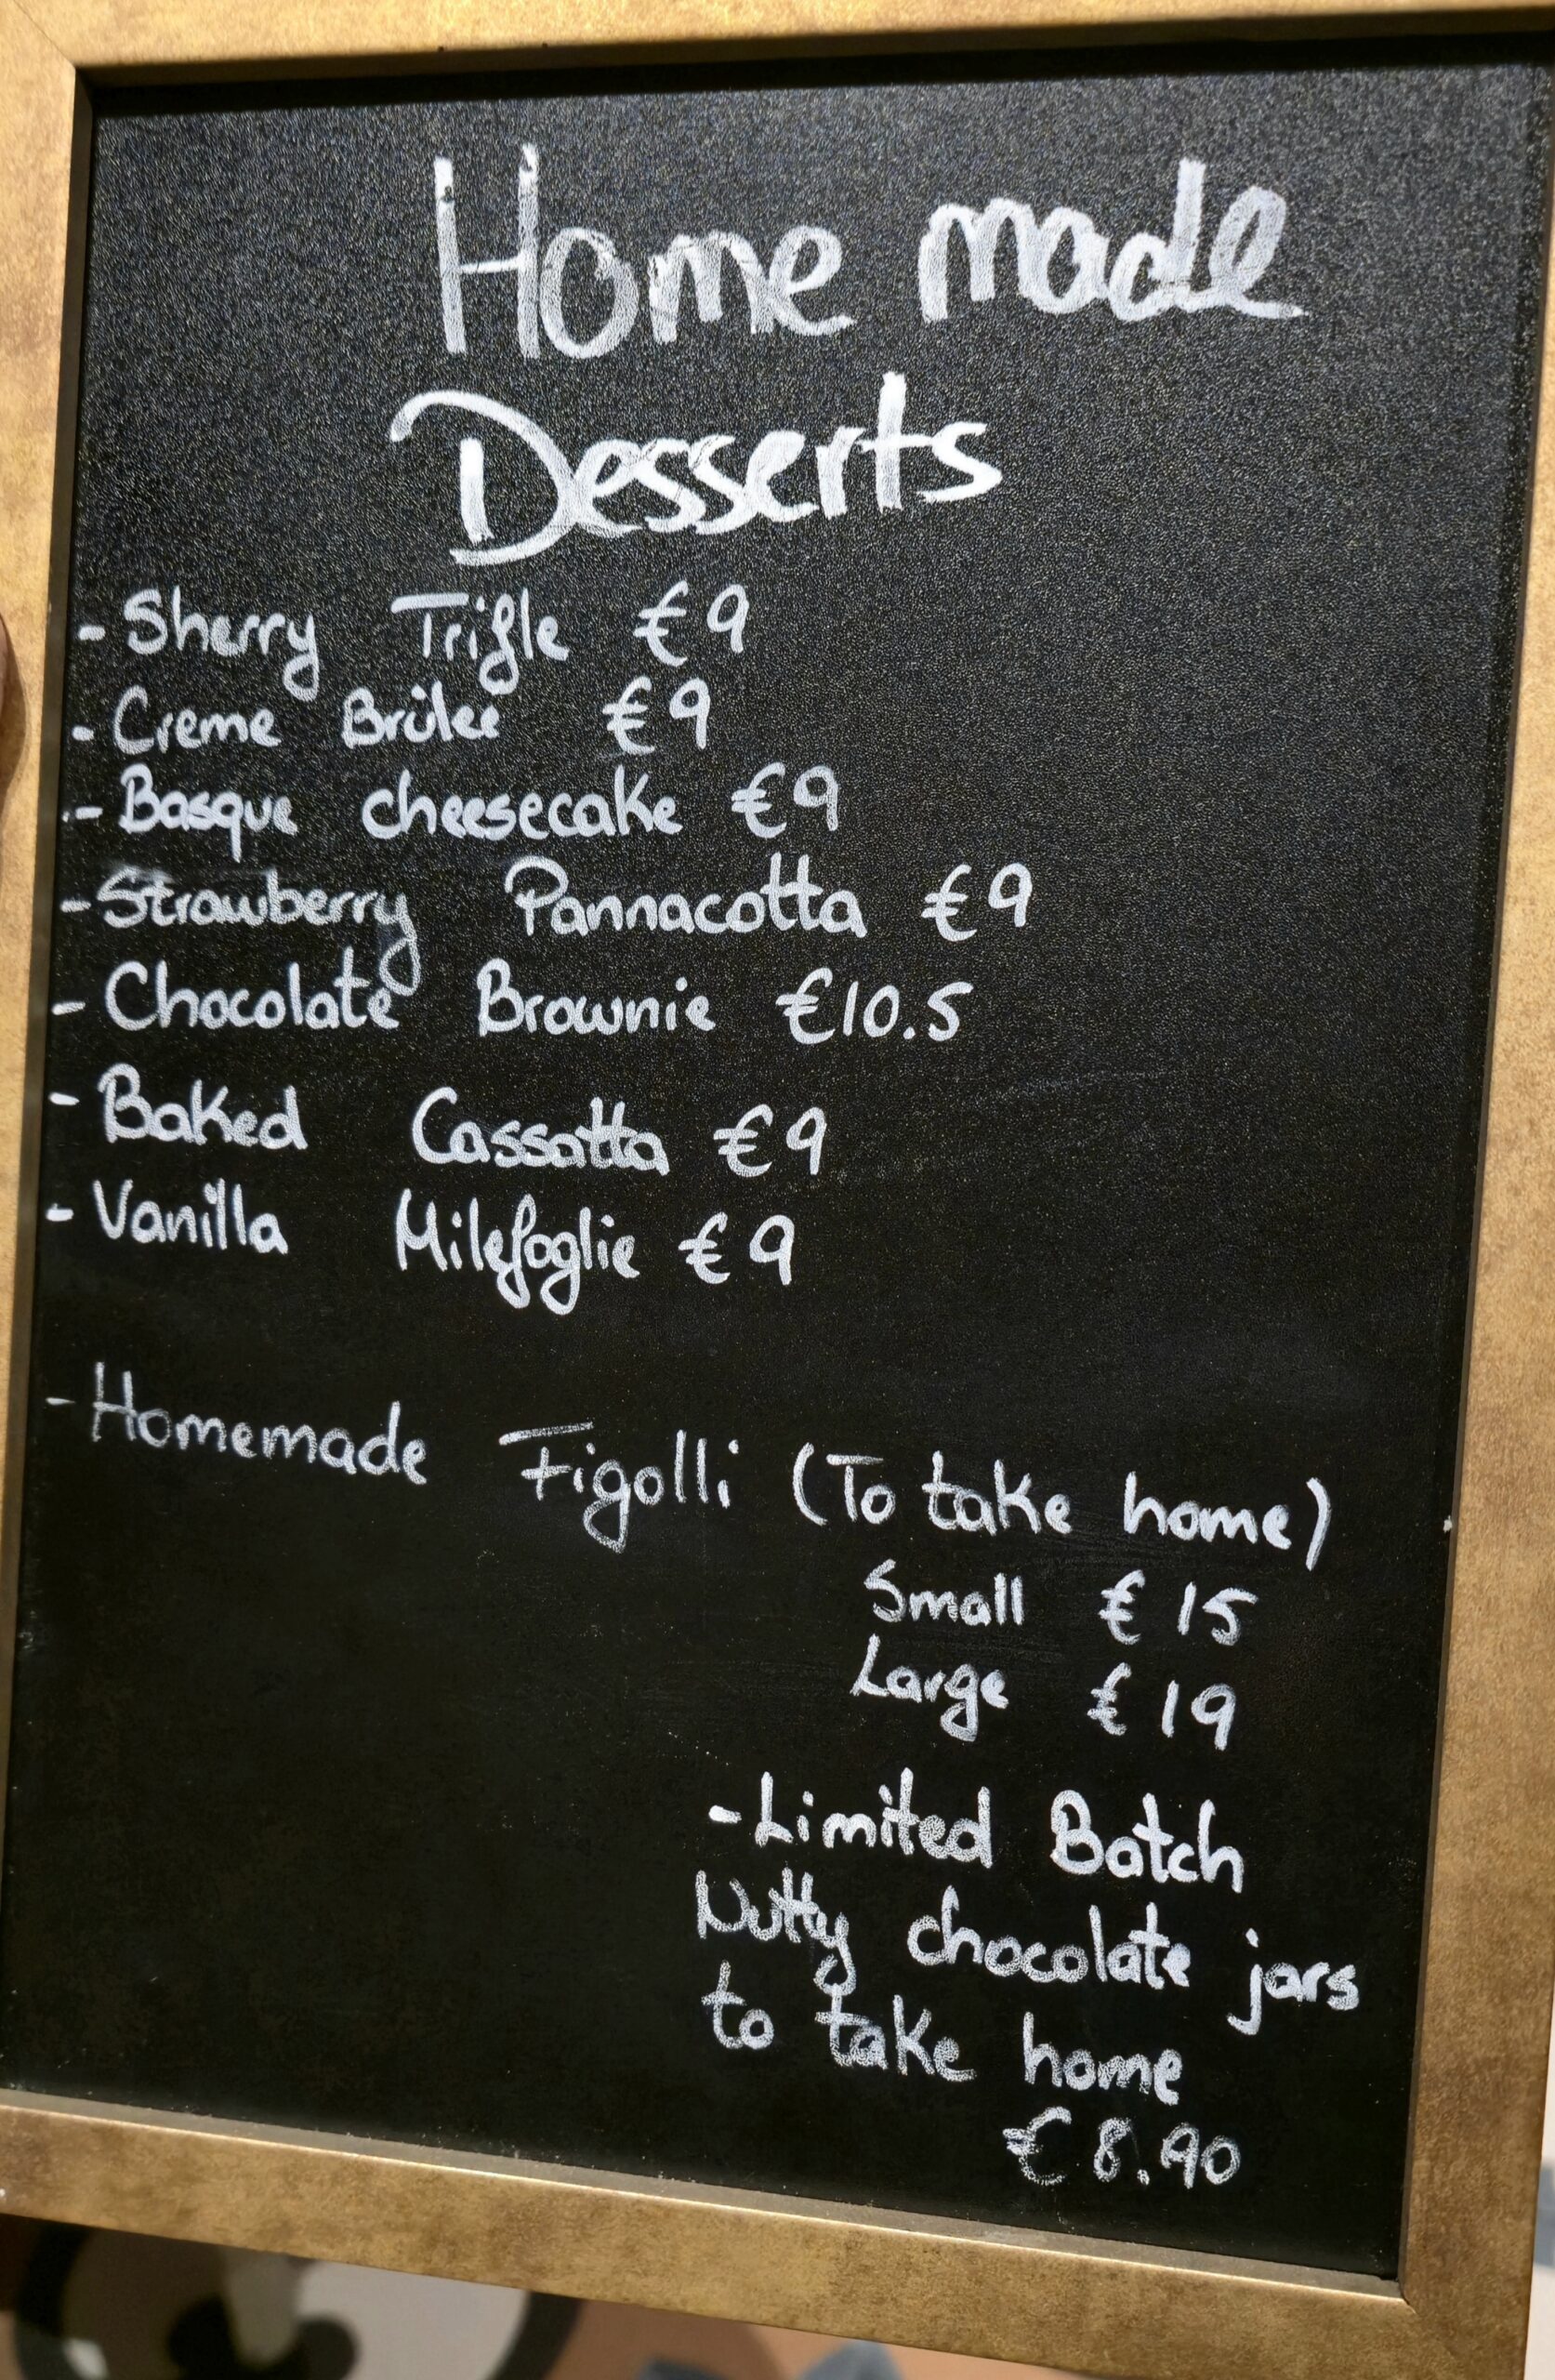 Home made
Desserts
- Sherry Trifle €9
- Creme Brûlee €9
- Basque cheesecake €9
- Strawberry Pannacotta €9
- Chocolate Brownie €10.5
- Baked Cassatta €9
- Vanilla Milefoglie €9
- Homemade Figolli (To take home)
Small € 15
Large € 19
- Limited Batch
Nutty chocolate jars
to take home
€ 8.90